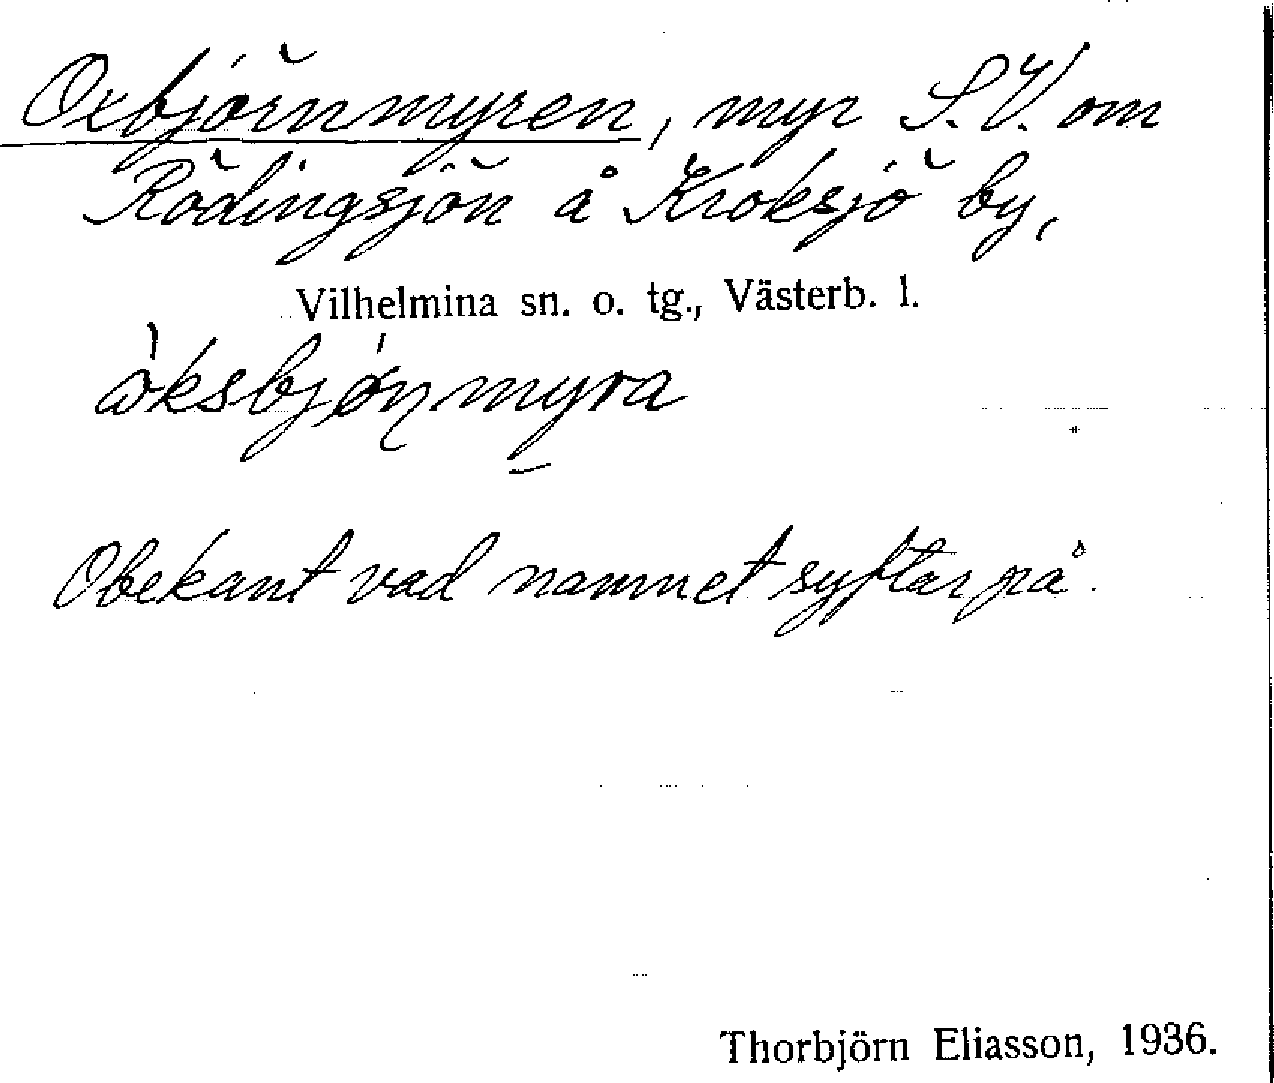 Oxbjörnmyren, myr S.V. om
Rödingsjön å Kroksjö by,
Vilhelmina sn. o. tg., Västerb. l.
òksbjø̀ɳmyra
Obekant vad namnet syftar på.
Thorbjörn Eliasson, 1936.